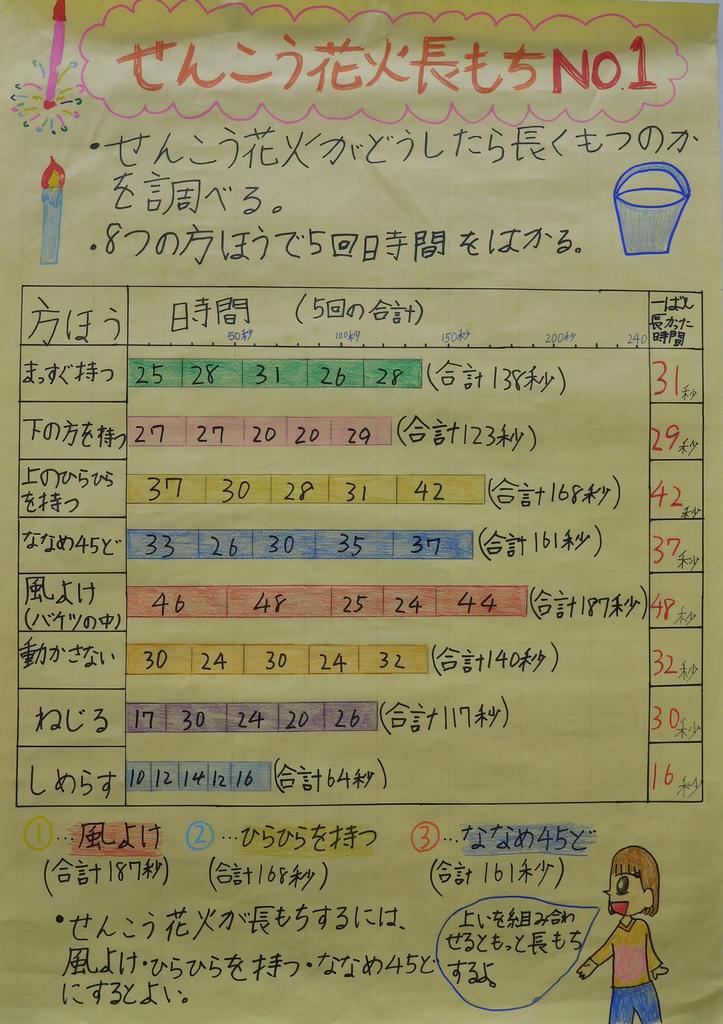 せんこう花火長もちNO.1
・せんこう花火がどうしたら長くもつのか
を調べる。
・8つの方ほうで5回時間をはかる。
方ほう 時間 (5回の合計) 一ばん長かった時間
50秒 100秒 150秒 200秒 240
まっすぐ持つ 25 28 31 26 28 (合計138秒) 31秒
下の方を持つ 27 27 20 20 29 (合計123秒) 29秒
上のひらひらを持つ 37 30 28 31 42 (合計168秒) 42秒
ななめ45ど 33 26 30 35 37 (合計161秒) 37秒
風よけ(バケツの中) 46 48 25 24 44 (合計187秒) 48秒
動かさない 30 24 30 24 32 (合計140秒) 32秒
ねじる 17 30 24 20 26 (合計117秒) 30秒
しめらす 10 12 14 12 16 (合計64秒) 16秒
①…風よけ ②…ひらひらを持つ ③…ななめ45ど
(合計187秒) (合計168秒) (合計161秒)
・せんこう花火が長もちするには、
風よけ・ひらひらを持つ・ななめ45ど
にするとよい。
上いを組み合わ
せるともっと長もち
するよ。